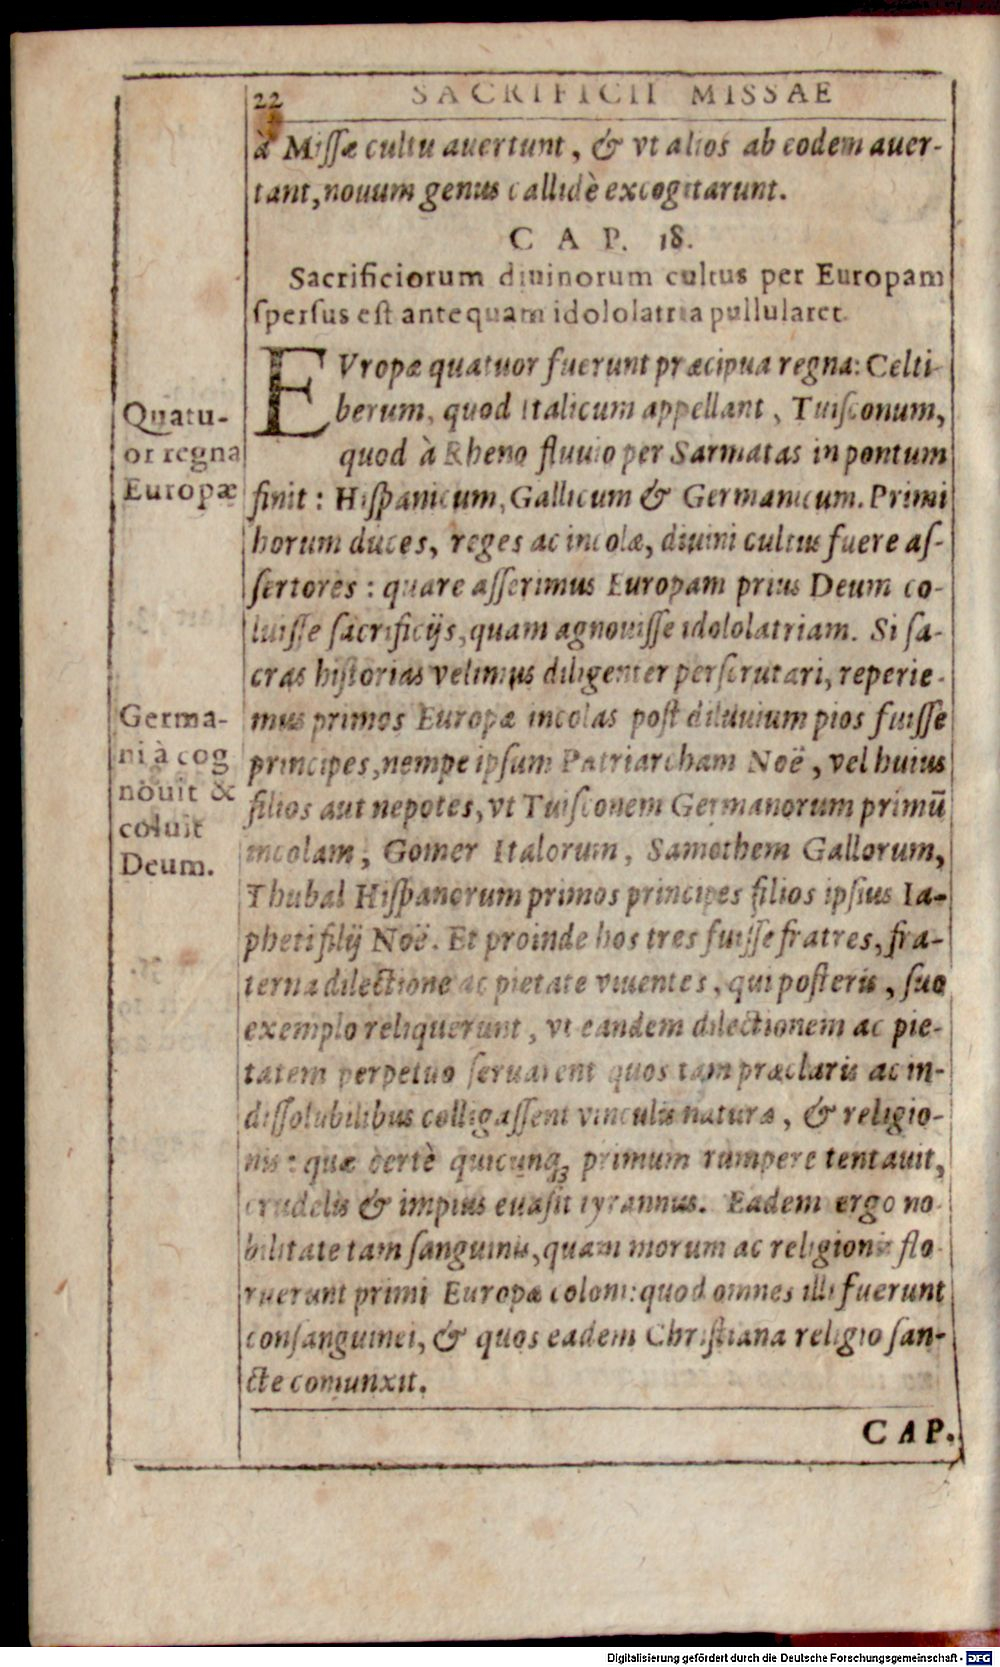 22 SACRIFICII MISSAE
à Missæ cultu auertunt, & vt alios ab eodem auer-
tant, nouum genus callidè excogitarunt.
CAP. 18.
Sacrificiorum diuinorum cultus per Europam
spersus est antequam idololatria pullularet.
EVropæ quatuor fuerunt præcipua regna: Celti-
berum, quod Italicum appellant, Tuisconum,
quod à Rheno fluuio per Sarmatas in pontum
finit: Hispanicum, Gallicum & Germanicum. Primi
horum duces, reges ac incolæ, diuini cultus fuere as-
sertores: quare asserimus Europam prius Deum co-
luisse sacrificijs, quam agnouisse idololatriam. Si sa-
cras historias velimus diligenter perscrutari, reperie-
mus primos Europæ incolas post diluuium pios fuisse
principes, nempe ipsum Patriarcham Noë, vel huius
filios aut nepotes, vt Tuisconem Germanorum primū
incolam, Gomer Italorum, Samothem Gallorum,
Thubal Hispanorum primos principes filios ipsius Ia-
pheti filij Noë. Et proinde hos tres fuisse fratres, fra-
terna dilectione ac pietate viuentes, qui posteris, suo
exemplo reliquerunt, vt eandem dilectionem ac pie-
tatem perpetuo seruarent quos tam præclaris ac in-
dissolubilibus colligassent vinculis naturæ, & religio-
nis: quæ certè quicunq; primum rumpere tentauit,
crudelis & impius euasit tyrannus. Eadem ergo no-
bilitate tam sanguinis, quam morum ac religionis flo-
ruerunt primi Europæ coloni: quod omnes illi fuerunt
consanguinei, & quos eadem Christiana religio san-
cte coniunxit.
CAP.
Quatu-
or regna
Europæ
Germa-
ni à cog
nouit &
coluit
Deum.
Digitalisierung gefördert durch die Deutsche Forschungsgemeinschaft - DFG